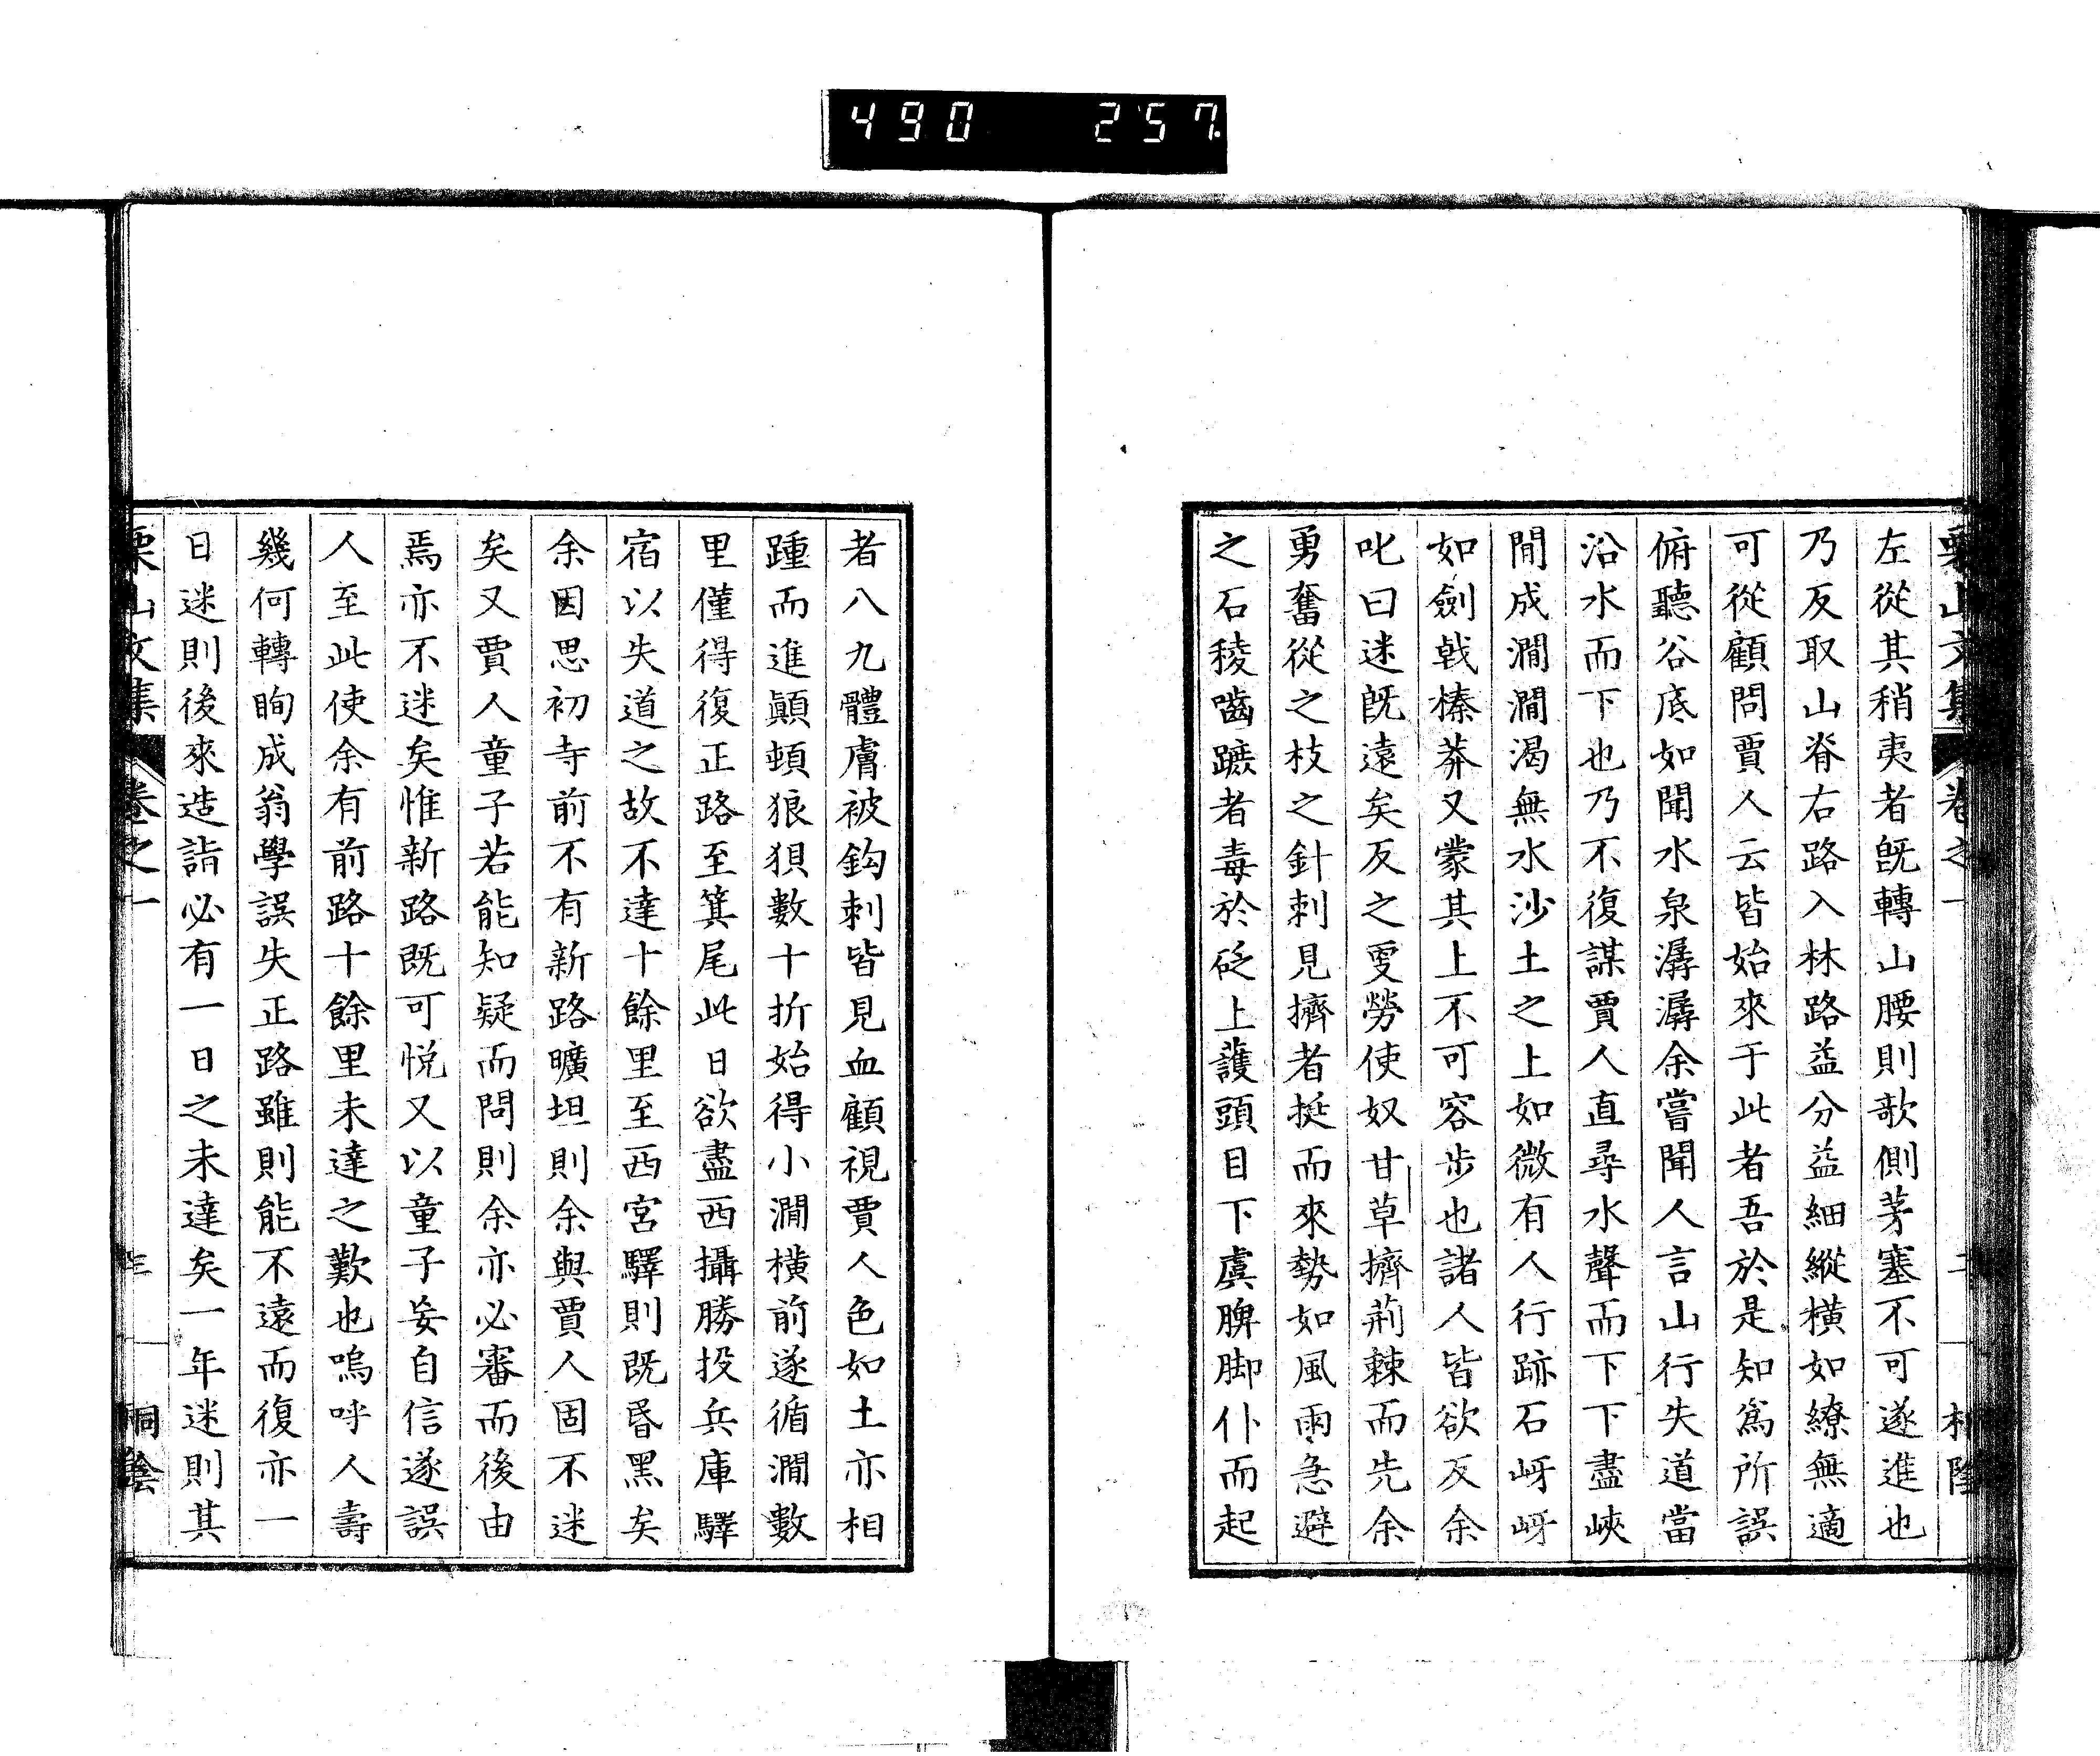 490 257
栗山文集 卷之一
左從其稍夷者既轉山腰則歌側茅塞不可遂進也
乃反取山脊右路入林路益分益細縱橫如繚無適
可從顧問賈人云皆始來于此者吾於是知爲所誤
俯聽谷底如聞水泉潺潺余嘗聞人言山行失道當
沿水而下也乃不復謀賈人直尋水聲而下下盡峽
閒成澗澗渴無水沙土之上如微有人行跡石岈岈
如劍戟榛莽又蒙其上不可容步也諸人皆欲反余
叱曰迷既遠矣反之更勞使奴甘草擠荊棘而先余
勇奮從之枝之針刺見擠者挺而來勢如風雨急避
之石稜嚙蹶者毒於砭上護頭目下虞脾脚仆而起
者八九體膚被鈎刺皆見血顧視賈人色如土亦相
踵而進顚頓狼狽數十折始得小澗橫前遂循澗數
里僅得復正路至箕尾此日欲盡西攝勝投兵庫驛
宿以失道之故不達十餘里至西宮驛則既昏黑矣
余因思初寺前不有新路曠坦則余與賈人固不迷
矣又賈人童子若能知疑而問則余亦必審而後由
焉亦不迷矣惟新路既可悦又以童子妄自信遂誤
人至此使余有前路十餘里未達之歎也嗚呼人壽
幾何轉眴成翁學誤失正路雖則能不遠而復亦一
日迷則後來造詣必有一日之未達矣一年迷則其
栗山文集 卷之一 三 桐陰